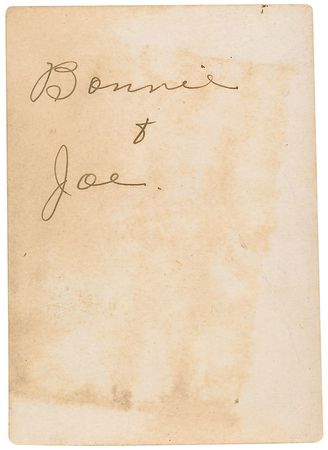 Bonnie
&
Joe.